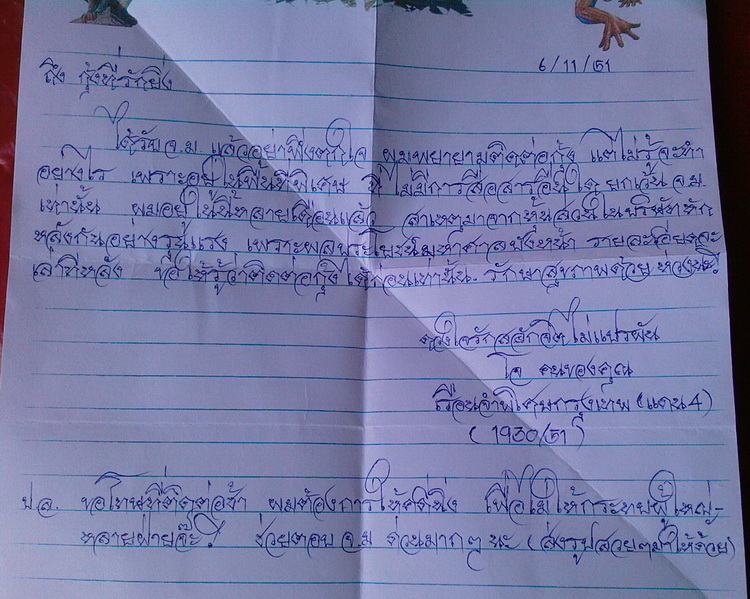 6/11/51
ถึง กุ้งที่รักยิ่ง
ได้รับ จ.ม. แล้วอย่าพึ่งตกใจ ผมพยายามติดต่อกุ้ง แต่ไม่รู้จะทำ
อย่างไร เพราะอยู่ในพื้นที่พิเศษ ที่ไม่มีการสื่อสารอื่นใด ยกเว้น จ.ม.
เท่านั้น ผมอยู่ในนี้หลายเดือนแล้ว สาเหตุมาจากหุ้นส่วนในบริษัทหัก
หลังกันอย่างรุนแรง เพราะผลประโยชน์มหาศาลบังหน้า รายละเอียดจะ
เล่าทีหลัง ขอให้รู้ว่าติดต่อกุ้งได้ก่อนเท่านั้น. รักษาสุขภาพด้วย ห่วงนะ!
ดวงใจรักสลักจิตไม่แปรผัน
โอ คนของคุณ
เรือนจำพิเศษกรุงเทพ (แดน 4)
(1930/51)
ป.ล. ขอโทษที่ติดต่อช้า ผมต้องการให้คดีนิ่ง เพื่อไม่ให้กระทบผู้ใหญ่-
หลายฝ่ายจ๊ะ! ช่วยตอบ จ.ม ด่วนมากๆ นะ (ส่งรูปสวยๆมาให้ด้วย)